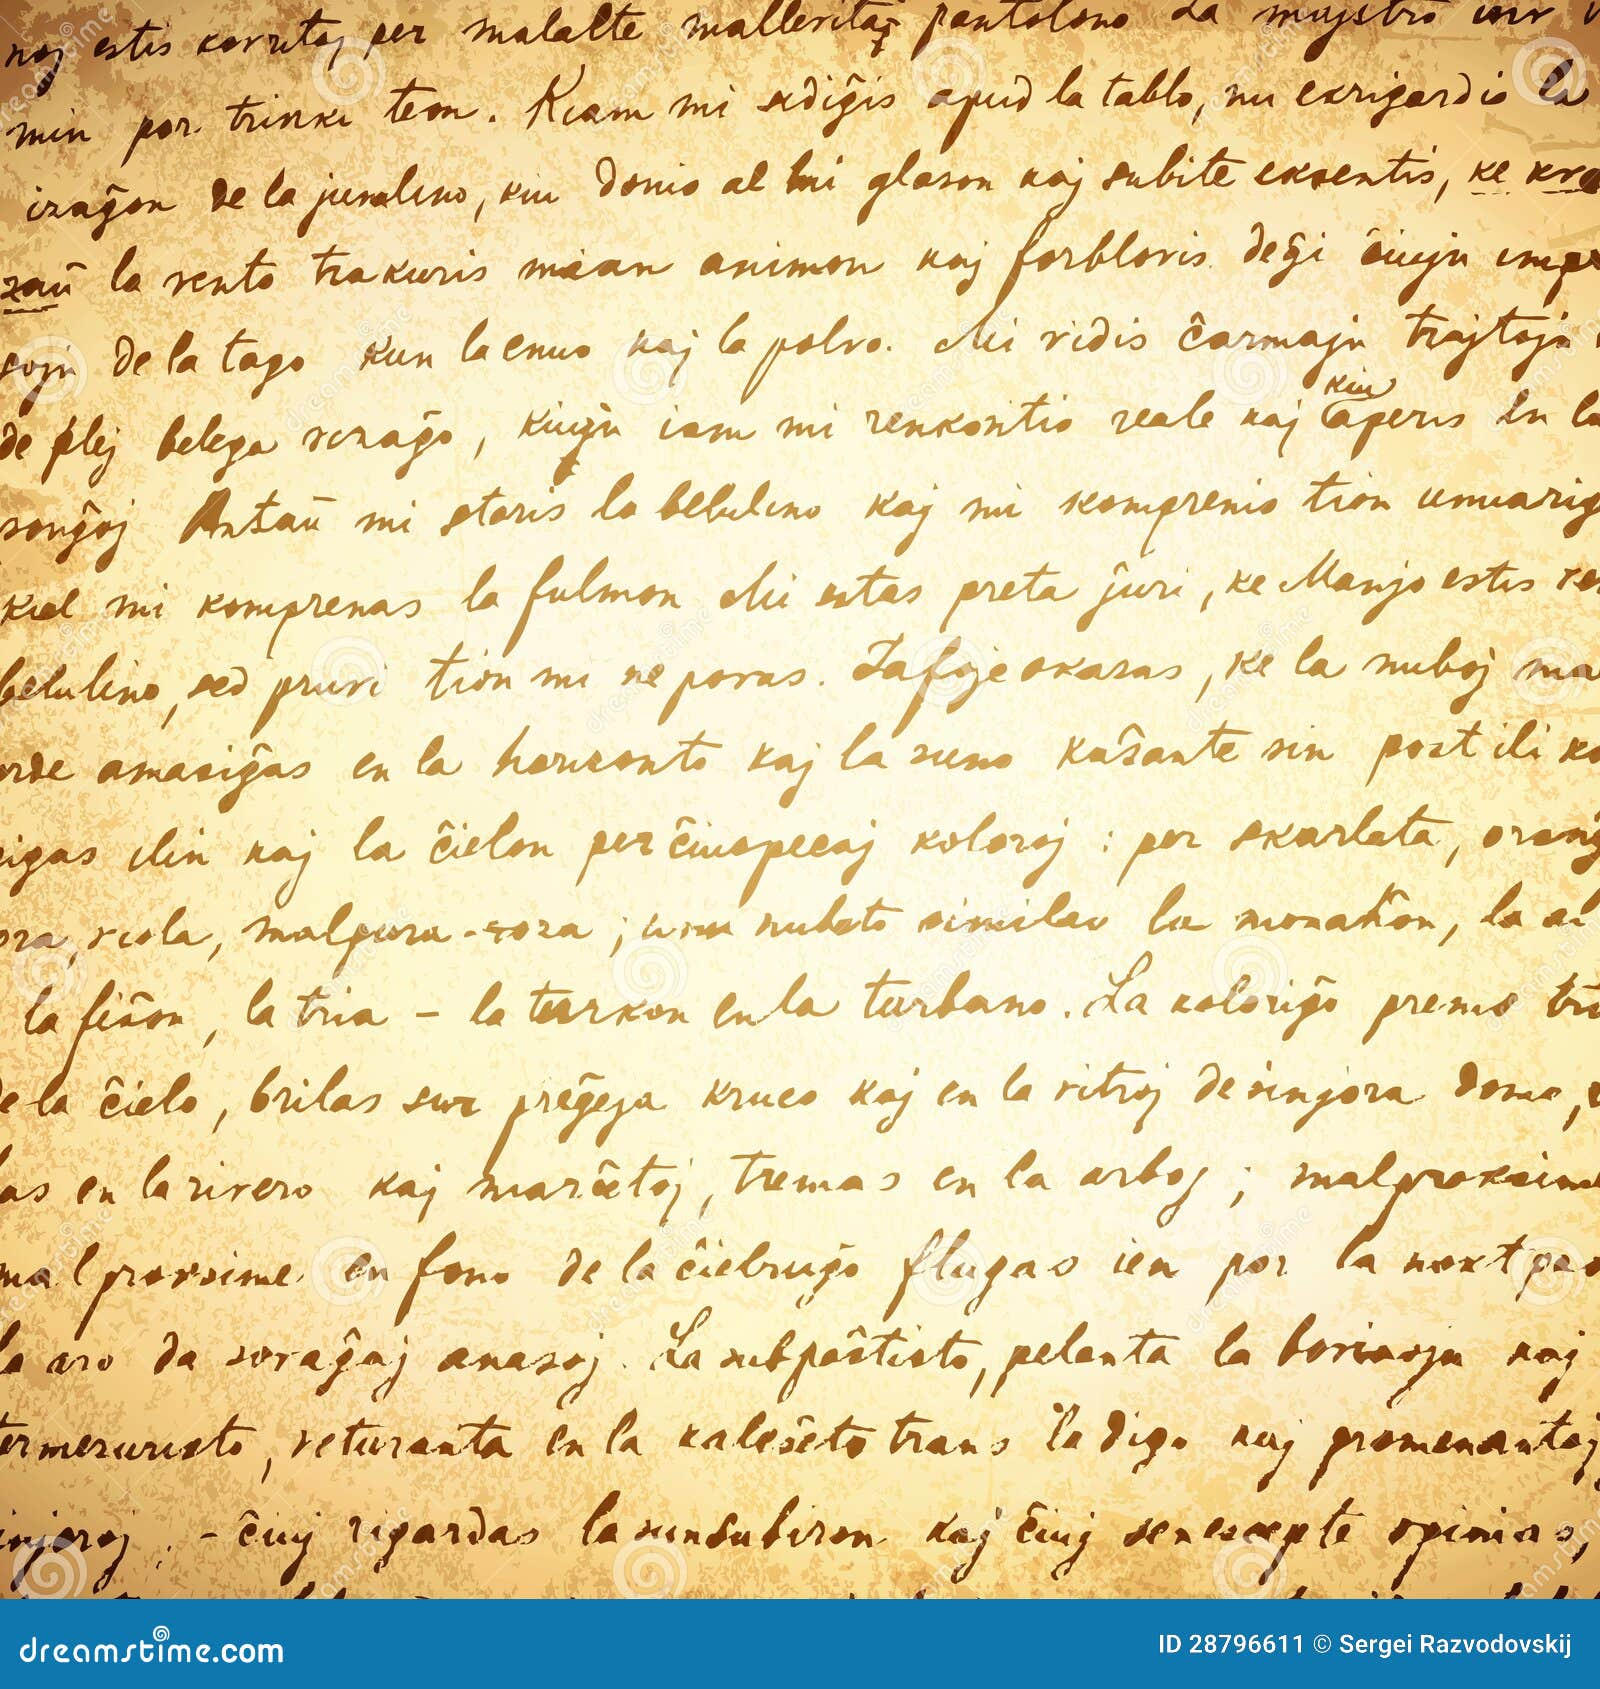 noj estis kovritaj per malalte mallevitaj pantolono La majstro
min por trinki teon. Kiam mi sidiĝis apud la tablo, mi ekrigardis la
izaĝon de la junulino, kiu donis al mi glason kaj subite eksentis, ke kva
zaŭ la vento trakuris mian animon kaj forblovis deĝi ĉiujn impre
sojn de la tago kun la enuo kaj la polvo. Mi vidis ĉarmajn trajtojn
de plej belega vizaĝo, kiujn iam mi renkontis reale kaj kiu aperis en la
sonĝoj Antaŭ mi staris la belulino kaj mi komprenis tion unuavig
kiel mi komprenas la fulmon Mi estas preta ĵuri, ke Manjo estis
belulino, sed pruvi tion mi ne povas. Lafoje okazas, ke la nuboj mal
orde amasiĝas en la horizonto kaj la suno kaŝante sin post ili ko
rigas ilin kaj la ĉielon per ĉiuspecaj koloroj : per skarlata, oranĝ
ora, viola, malpura-roza ; unu nubeto similas la monaĥon, la al
la fiŝon, la tria - la turkon en la turbano. La koloriĝo premis tri
de la ĉielo, brilas sur preĝeja kruco kaj en la vitroj de sinjora domo,
las en la rivero kaj marĉetoj, tremas en la arboj ; malproksime
malproksime en fono de la ĉielruĝo flugas ien por la noktpao
la aro da sovaĝaj anasoj. La subpaŝtisto, pelanta la bovinojn kaj
termezuristo, veturanta en la kaleŝeto trans la digo kaj promenantaj
injoroj. - ĉiuj rigardas la sunsubiron kaj ĉiuj senescepte opinias,
dreamstime
ID 28796611 © Sergei Razvodovskij